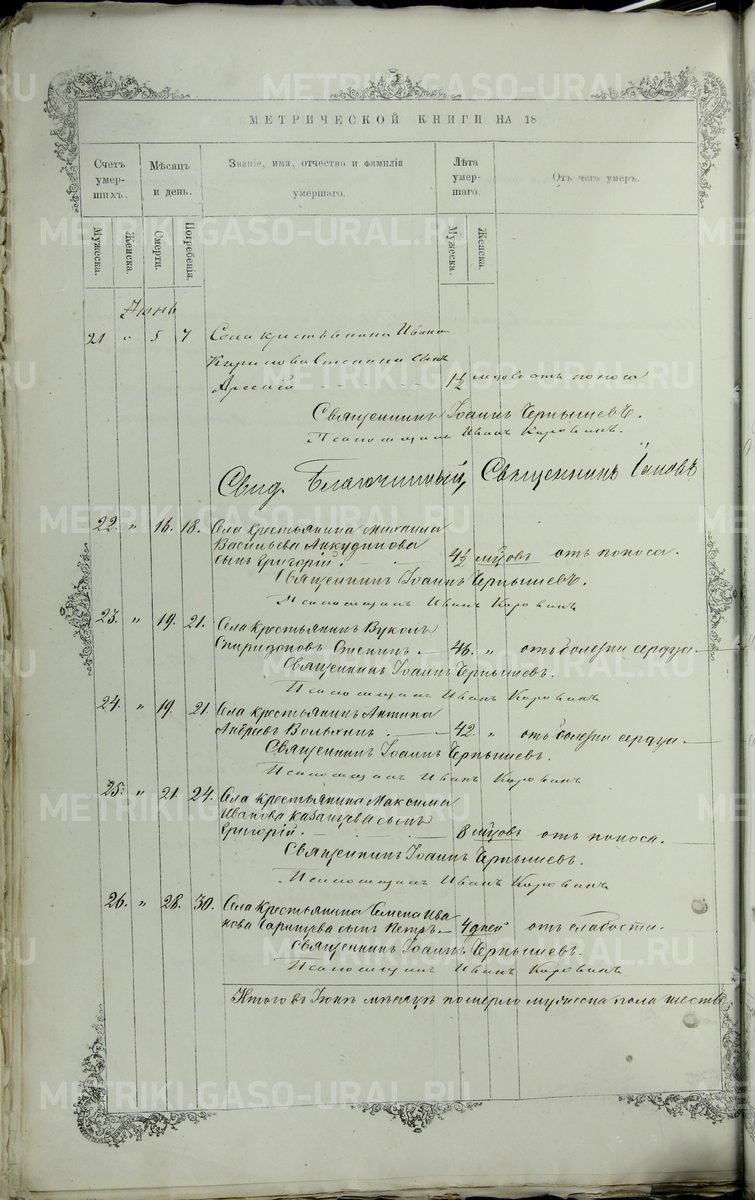 МЕТРИЧЕСКОЙ КНИГИ НА 18
Счетъ умершихъ.
Мѣсяцъ и день.
Званіе, имя, отчество и фамилія умершаго.
Лѣта умершаго.
Отъ чего умеръ.
Мужеска.
Женска.
Смерти.
Погребенія.
Мужеска.
Женска.
Іюнь
21 " 5 7 Села крестьянина Ивана
Кирилова Степана сынъ
Арсеній 1½ отъ поноса
Священникъ Іоаннъ Чернышевъ.
Псаломщикъ Иванъ Коровинъ.
Свид. Благочинный, Священникъ
22. " 16. 18. Села крестьянина Михаила
Васильева Анкудинова
сынъ Григорій 4½ мѣсяцовъ отъ поноса.
Священникъ Іоаннъ Чернышевъ.
Псаломщикъ Иванъ Коровинъ
23. " 19. 21. Села крестьянинъ Вуколъ
Спиридоновъ 46. " отъ болезни сердца
Священникъ Іоаннъ Чернышевъ.
Псаломщикъ Иванъ Коровинъ
24. " 19. 21. Села крестьянинъ Антипа
Андреевъ 42. " отъ болезни сердца
Священникъ Іоаннъ Чернышевъ.
Псаломщикъ Иванъ Коровинъ
25. " 21. 24. Села крестьянина Максима
Иванова Казанцева сынъ
Григорій 8 мѣсяцовъ отъ поноса.
Священникъ Іоаннъ Чернышевъ.
Псаломщикъ Иванъ Коровинъ
26. " 28. 30. Села Крестьянина Семена Ива
нова сынъ Петръ 4 дней отъ слабости.
Священникъ Іоаннъ Чернышевъ.
Псаломщикъ Иванъ Коровинъ
Итого въ Іюнѣ мѣсяцѣ померло мужеска пола шесть
METRIKI.GASO-URAL.RU